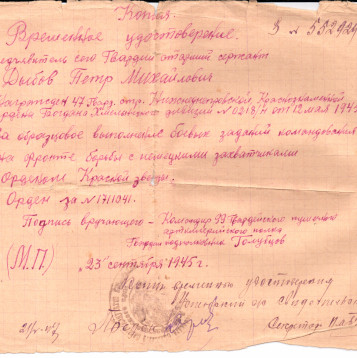 Копия.
З № 552929
Временное удостоверение.
Предъявитель сего Гвардии старший сержант
Дыбов Петр Михайлович
награжден 47 Гвард. стр. Нижнеднепровской Краснознаменной
ордена Богдана Хмельницкого дивизии № 0218/н от 12 мая 1945
за образцовое выполнение боевых заданий командования
на фронте борьбы с немецкими захватчиками
Орденом Красной звезды.
Орден за № 1711041.
Подпись вручающего – Командир 99 Гвардейского пушечного
артиллерийского полка
Гвардии подполковник Голубцов
(М.П.) „23" сентября 1945 г.
временному удостоверению
Секретарь